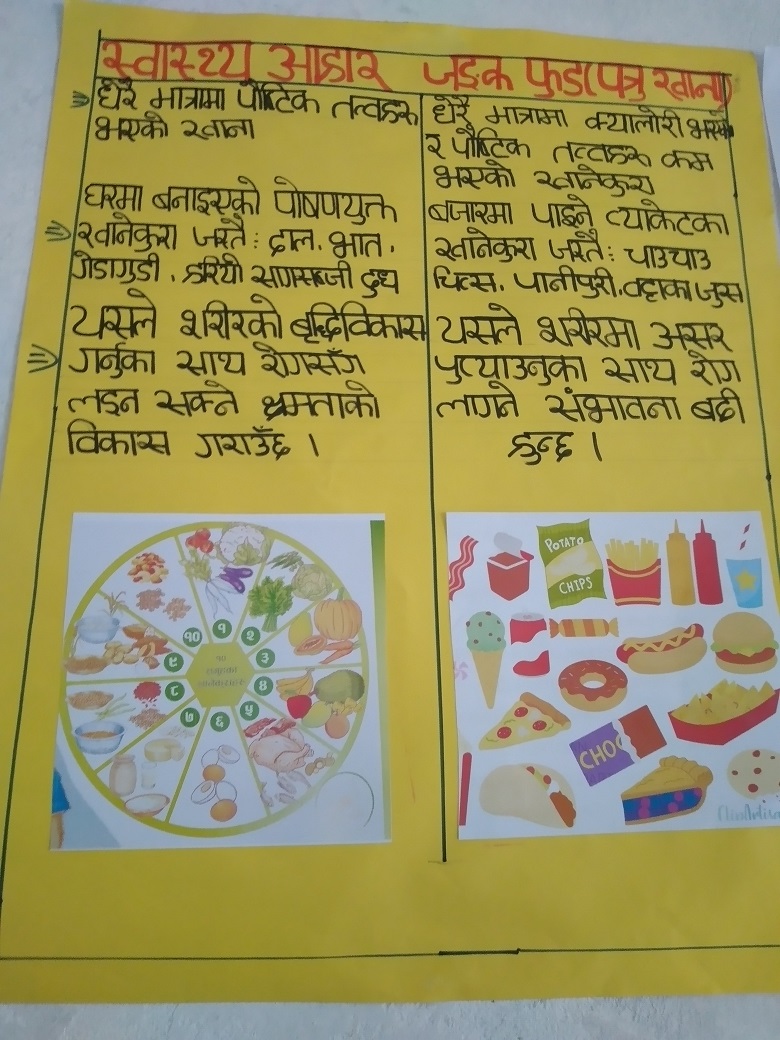 स्वास्थ्य आहार
धेरै मात्रामा पौष्टिक तत्वहरु
भएको खाना
घरमा बनाइएको पोषणयुक्त
खानेकुरा जस्तै: दाल, भात,
गेडागुडी, हरियो सागसब्जी दुध
यसले शरीरको बृद्धिविकास
गर्नुका साथ रोगसँग
लड्न सक्ने क्षमताको
विकास गराउँछ ।
१
२
३
४
५
६
७
८
९
१०
जङ्क फुड(पत्रु खाना)
धेरै मात्रामा क्यालोरी भएको
र पौष्टिक तत्वहरु कम
भएको खानेकुरा
बजारमा पाइने प्याकेटका
खानेकुरा जस्तै: चाउचाउ
चिप्स, पानीपुरी, बट्टाका जुस
यसले शरीरमा असर
पुर्‍याउनुका साथ रोग
लाग्ने संभावना बढी
हुन्छ ।
POTATO
CHIPS
CHOC